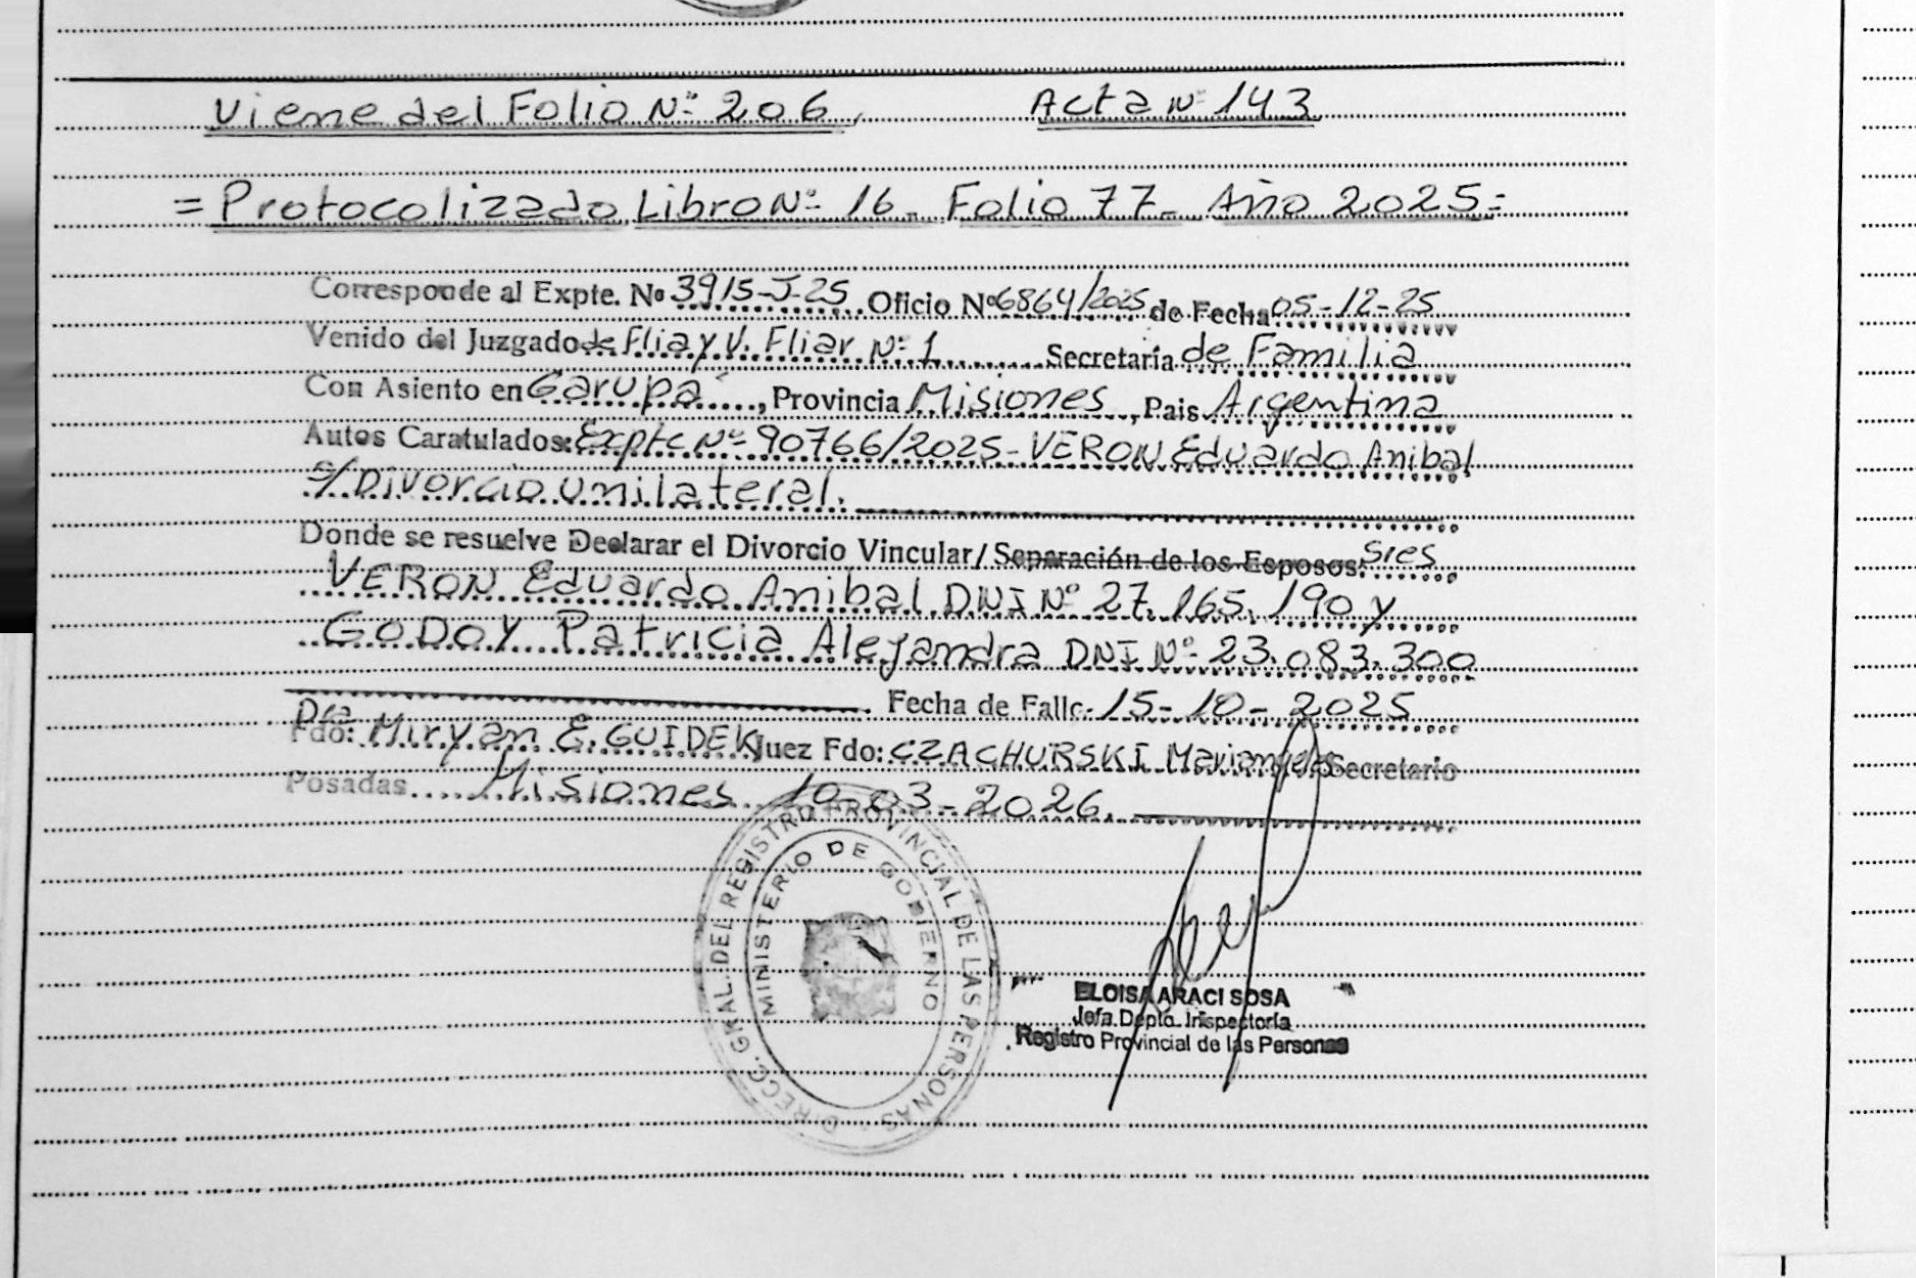 Viene del Folio Nº 206, Acta Nº 143
= Protocolizado Libro Nº 16 - Folio 77 - Año 2025 =
Corresponde al Expte. Nº 3915-J-25 Oficio Nº 6864/2025 de Fecha 05-12-25
Venido del Juzgado de Flia y V. Fliar Nº 1 Secretaría de Familia
Con Asiento en Garupá, Provincia Misiones, Pais Argentina
Autos Caratulados: Expte Nº 90766/2025 - VERON Eduardo Anibal
s/Divorcio Unilateral.
Donde se resuelve Declarar el Divorcio Vincular/Separación de los Esposos: Sres
VERON Eduardo Anibal DNI Nº 27.165.190 y
GODOY Patricia Alejandra DNI Nº 23.083.300
Fecha de Fallo 15-10-2025
Dra
Fdo: Miryan E. GUIDEK Juez Fdo: CZACHURSKI Mariangeles Secretario
Posadas Misiones 10-03-2026.
DIRECC. GRAL. DEL REGISTRO PROVINCIAL DE LAS PERSONAS
MINISTERIO DE GOBIERNO
ELOISA ARACI SOSA
Jefa Depto. Inspectoría
Registro Provincial de las Personas